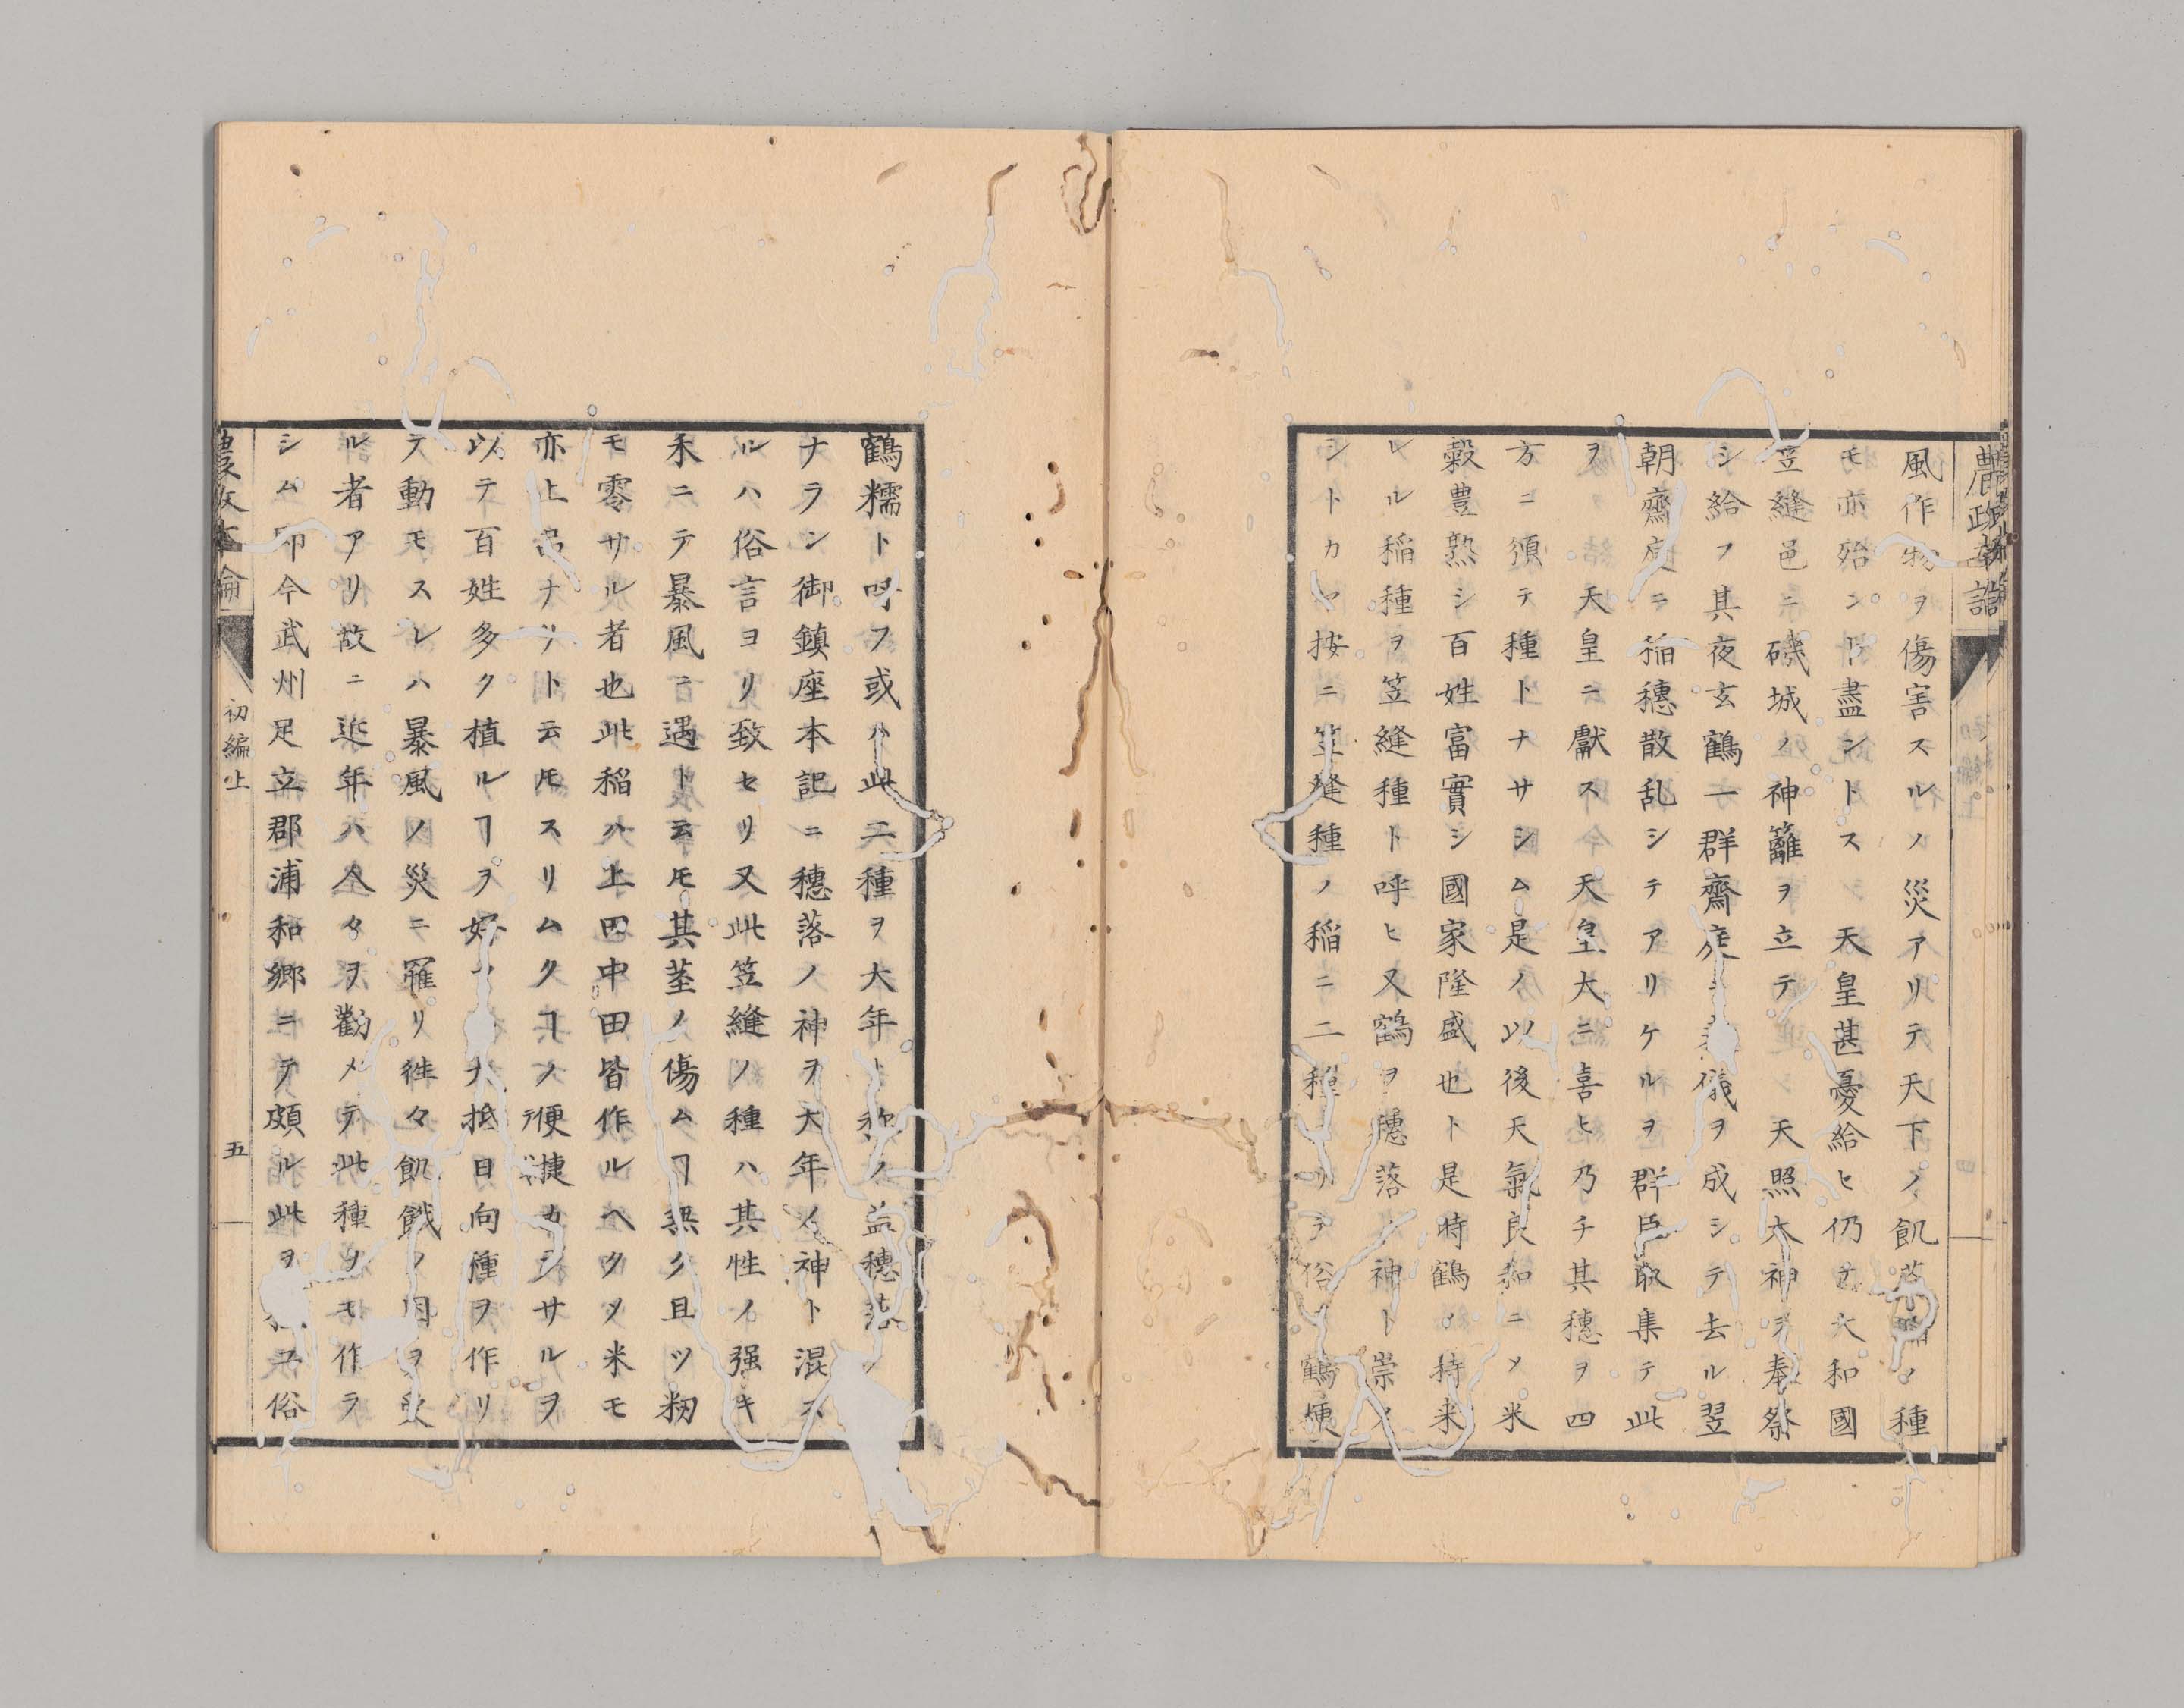 風作物ヲ傷害スルノ災アリテ天下ノ飢ノ種
モ亦殆ント盡ントス天皇甚憂給ヒ仍テ大和國
笠縫邑ニ磯城ノ神籬ヲ立テ天照大神ヲ奉祭
シ給フ其夜玄鶴一群齋庭ニ儀ヲ成シテ去ル翌
朝齋庭ニ稲穗散乱シテアリケルヲ群臣取集テ此
ヲ天皇ニ獻ス天皇大ニ喜ヒ乃チ其穗ヲ四
方ニ頒テ種トナサシム是ノ以後天氣良和ニメ米
穀豊熟シ百姓富實シ國家隆盛也ト是時鶴ノ持来
レル稲種ヲ笠縫種ト呼ヒ又鶴ヲ穗落神ト崇メ
シトカヤ按ニ笠縫種ノ稲ニ二種アリテ俗ニ鶴粳
鶴糯ト呼フ或ハ此二種ヲ大年ト称ノ益穗落ノ
ナラン御鎮座本記ニ穗落ノ神ヲ大年ノ神ト混ス
ルハ俗言ヨリ致セリ又此笠縫ノ種ハ其性ノ强キ
禾ニテ暴風ニ遇トモ其茎ノ傷ムヿ無ク且ツ籾
モ零サル者也此稲ハ上田中田皆作ルヘクメ米モ
亦上品ナリト云𪜈スリムクヿノ便捷カシサルヲ
以テ百姓多ク植ルヿヲ好マス大抵日向種ヲ作リ
テ動モスレハ暴風ノ災ニ罹リ徃々飢餓ノ困ヲ受
ル者アリ故ニ近年ハ人々ヲ勸メテ此種ヲモ作ラ
シム卽今武州足立郡浦和郷ニテ頗ル此ヲ俗
農政本論
初編上
五